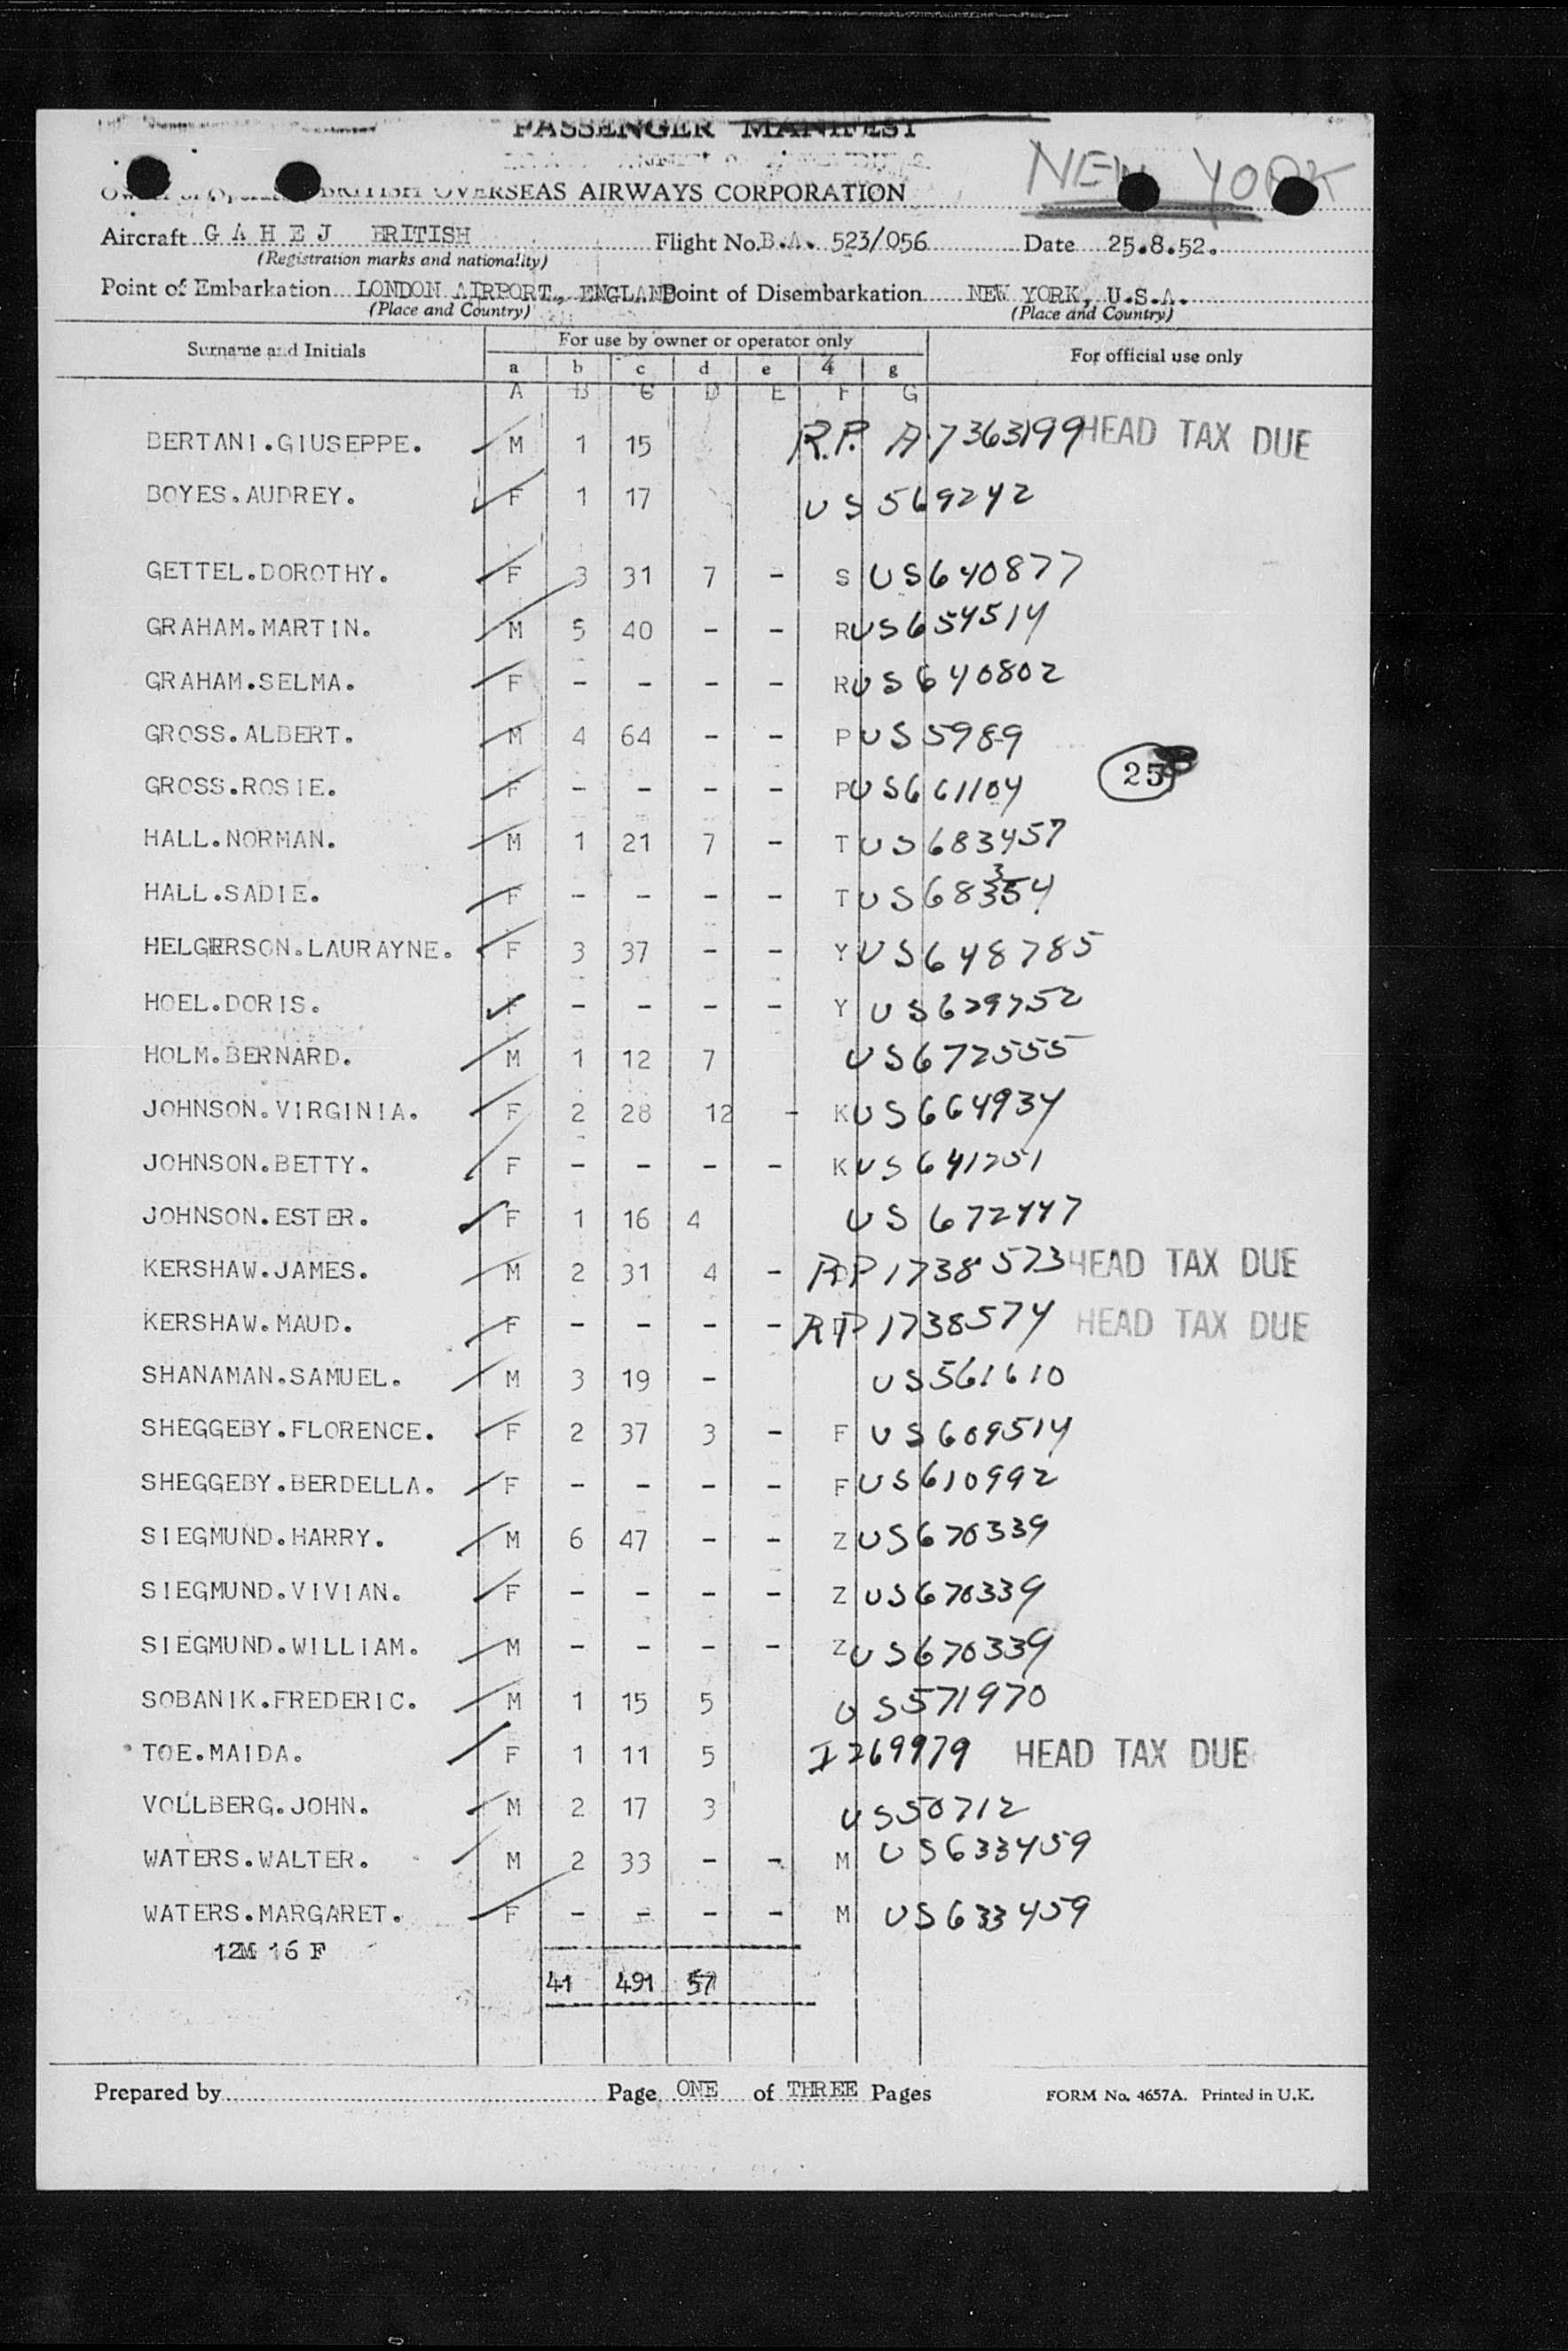 PASSENGER MANIFEST
NEW YORK
BRITISH OVERSEAS AIRWAYS CORPORATION
Aircraft G A H E J BRITISH Flight No. B.A. 523/056 Date 25.8.52.
(Registration marks and nationality)
Point of Embarkation LONDON AIRPORT., ENGLAND Point of Disembarkation NEW YORK, U.S.A.
(Place and Country) (Place and Country)
Surname and Initials For use by owner or operator only For official use only
a b c d e 4 g
A B C D E F G
BERTANI.GIUSEPPE. M 1 15 R.P. A.7363199 HEAD TAX DUE
BOYES.AUDREY. F 1 17 US 569242
GETTEL.DOROTHY. F 3 31 7 - S US640877
GRAHAM.MARTIN. M 5 40 - - R US654514
GRAHAM.SELMA. F - - - - R US640802
GROSS.ALBERT. M 4 64 - - P US5989
25
GROSS.ROSIE. F - - - - P US661104
HALL.NORMAN. M 1 21 7 - T US683457
HALL.SADIE. F - - - - T
HELGERSON.LAURAYNE. F 3 37 - - Y US648785
HOEL.DORIS. F - - - - Y US629752
HOLM.BERNARD. M 1 12 7 US672555
JOHNSON.VIRGINIA. F 2 28 12 - K US664934
JOHNSON.BETTY. F - - - - K US641251
JOHNSON.ESTER. F 1 16 4 US 672447
KERSHAW.JAMES. M 2 31 4 - RP1738573 HEAD TAX DUE
KERSHAW.MAUD. F - - - - RP1738574 HEAD TAX DUE
SHANAMAN.SAMUEL. M 3 19 - US561610
SHEGGEBY.FLORENCE. F 2 37 3 - F US609514
SHEGGEBY.BERDELLA. F - - - - F US610992
SIEGMUND.HARRY. M 6 47 - - Z US670339
SIEGMUND.VIVIAN. F - - - - Z US670339
SIEGMUND.WILLIAM. M - - - - Z US670339
SOBANIK.FREDERIC. M 1 15 5 US571970
TOE.MAIDA. F 1 11 5 I269979 HEAD TAX DUE
VOLLBERG.JOHN. M 2 17 3 US50712
WATERS.WALTER. M 2 33 - - M US633459
WATERS.MARGARET. F - - - - M US633459
12M 16 F
41 491 57
Prepared by Page ONE of THREE Pages FORM No. 4657A. Printed in U.K.